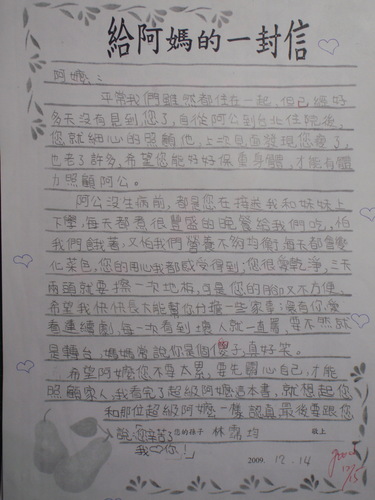 給阿媽的一封信
阿嬤：
平常我們雖然都住在一起，但已經好
多天沒有見到您了，自從阿公到台北住院後，
您就細心的照顧他，上次見面發現您瘦了，
也老了許多，希望您能好好保重身體，才能有體
力照顧阿公。
阿公沒生病前，都是您在接送我和妹妹上
下學，每天都煮很豐盛的晚餐給我們吃，怕
我們餓著，又怕我們營養不夠均衡，每天都會變
化菜色，您的用心我都感受得到；您很愛乾淨，三天
兩頭就要擦一次地板，可是您的腳又不方便，
希望我快快長大能幫你分擔一些家事；還有你愛
看連續劇，每一次看到壞人就一直罵，要不然就
是轉台，媽媽常說你是個傻子，真好笑。
希望阿嬤您不要太累，要先關心自己，才能
照顧家人，我看完了超級阿嬤這本書，就想起您
和那位超級阿嬤一樣認真，最後要跟您
說您辛苦了 您的孫子 林 均 敬上
我♡你！
2009. 12. 14
Good
12/15